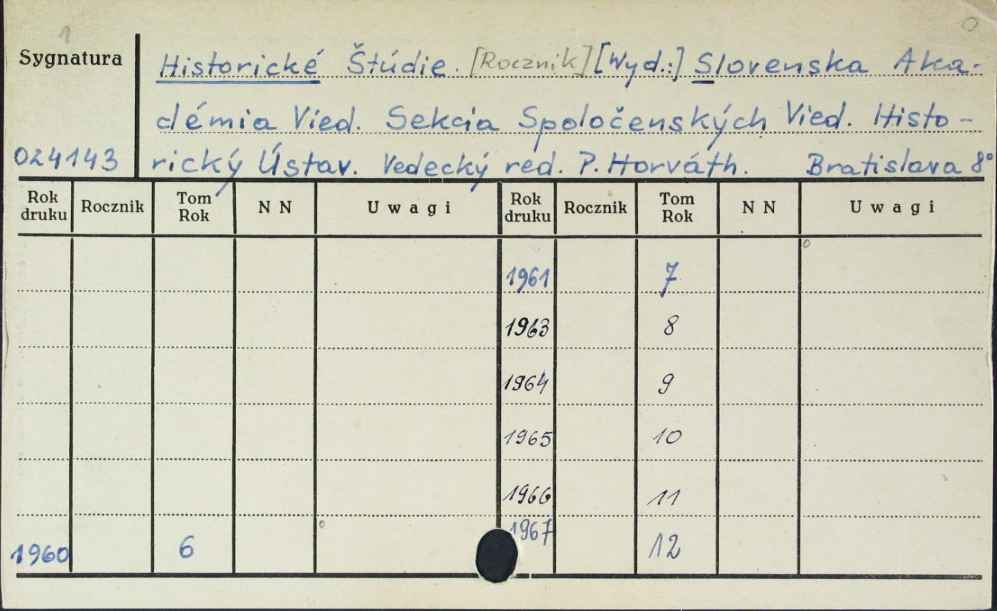 1
Sygnatura
Historické Štúdie. [Rocznik] [Wyd.:] Slovenska Aka-
démia Vied. Sekcia Spoločenských Vied. Histo-
024143 rický Ústav. Vedecký red. P. Horváth. Bratislava 8°
Rok druku Rocznik Tom Rok N N Uwagi Rok druku Rocznik Tom Rok N N Uwagi
1961 7
1963 8
1964 9
1965 10
1966 11
1960 6 1967 12